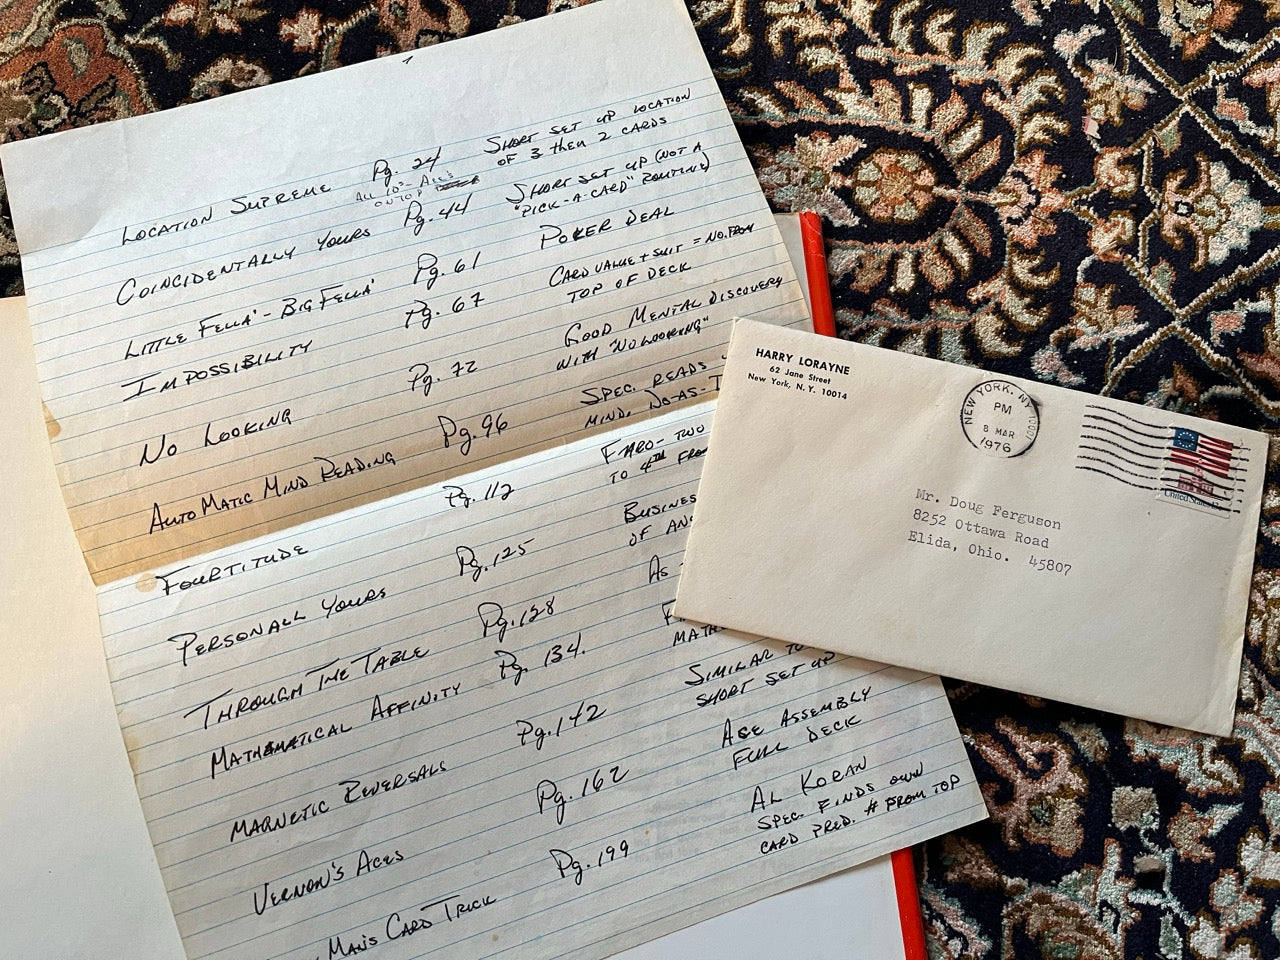 LOCATION SUPREME Pg. 24 SHORT SET UP LOCATION
OF 3 then 2 CARDS
ALL 10's - ACES
COINCIDENTALLY YOURS Pg. 44 SHORT SET UP (NOT A
"PICK-A-CARD" ROUTINE)
LITTLE FELLA' - BIG FELLA' Pg. 61 POKER DEAL
IMPOSSIBILITY Pg. 67 CARD VALUE + SUIT = NO. FROM
TOP OF DECK
NO LOOKING Pg. 72 GOOD MENTAL DISCOVERY
WITH "NO LOOKING"
AUTOMATIC MIND READING Pg. 96 SPEC. READS
MIND. DO-AS-I
FOURTITUDE Pg. 112 FARO - TWO
TO 4TH FROM
PERSONALL YOURS Pg. 125 BUSINES
OF AN
THROUGH THE TABLE Pg. 128 AS -
MATHEMATICAL AFFINITY Pg. 134.
MATH
MAGNETIC REVERSALS Pg. 142 SIMILAR TO
SHORT SET UP
VERNON'S ACES Pg. 162 ACE ASSEMBLY
FULL DECK
MAN'S CARD TRICK Pg. 199 AL KORAN
SPEC. FINDS OWN
CARD PRED. # FROM TOP
HARRY LORAYNE
62 Jane Street
New York, N. Y. 10014
NEW YORK, NY
PM
8 MAR
1976
United States
Mr. Doug Ferguson
8252 Ottawa Road
Elida, Ohio. 45807